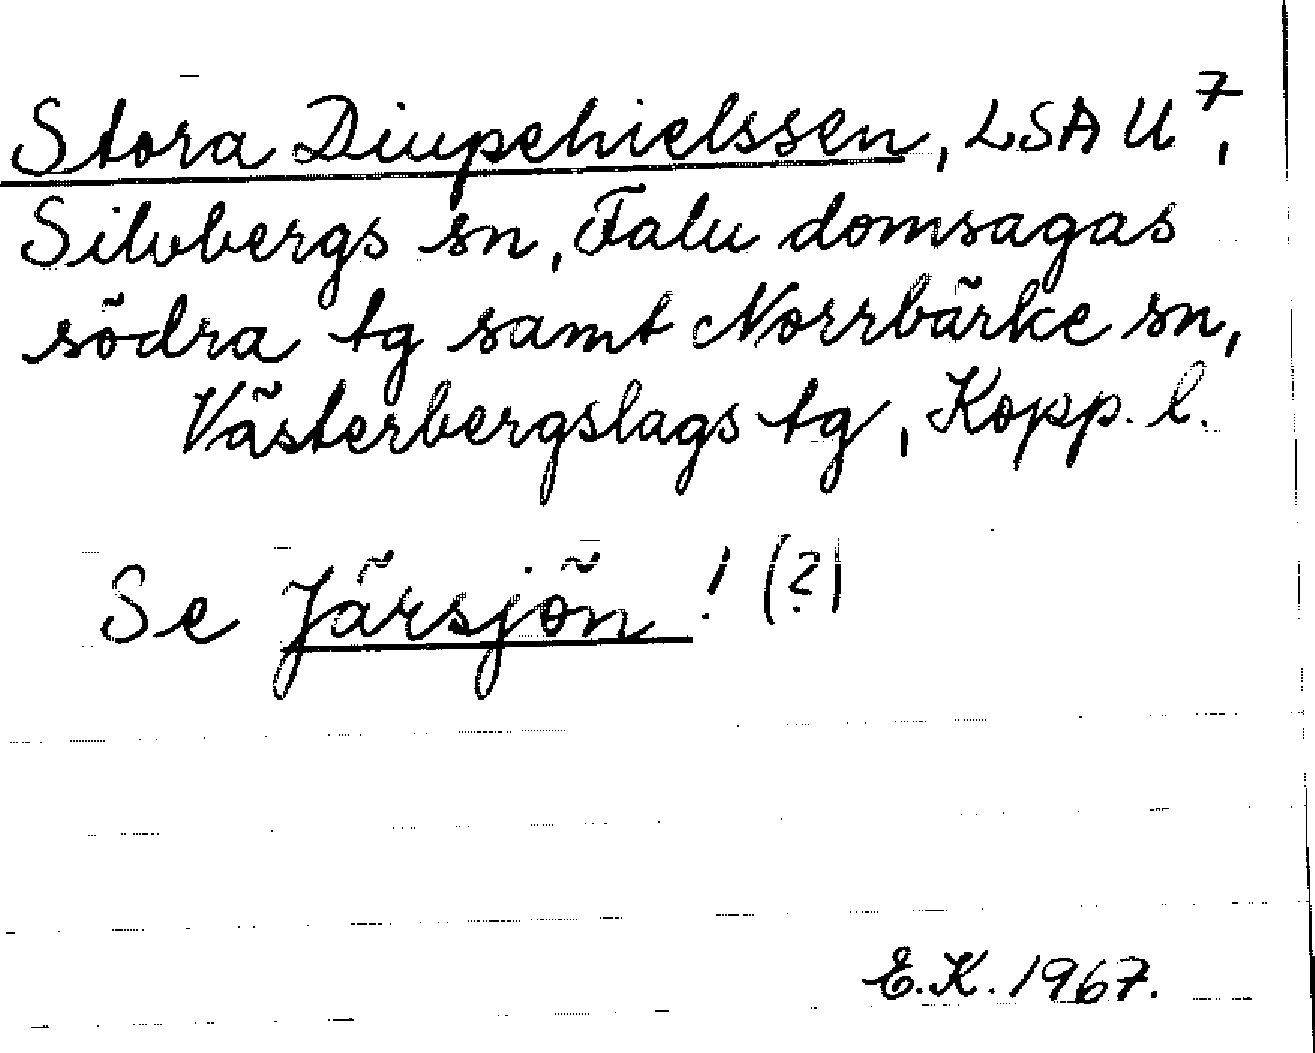 Stora Diupehielssen, LSA U⁷,
Silvbergs sn, Falu domsagas
södra tg samt Norrbärke sn,
Västerbergslags tg, Kopp. l.
Se Järsjön! (?)
E.K. 1967.